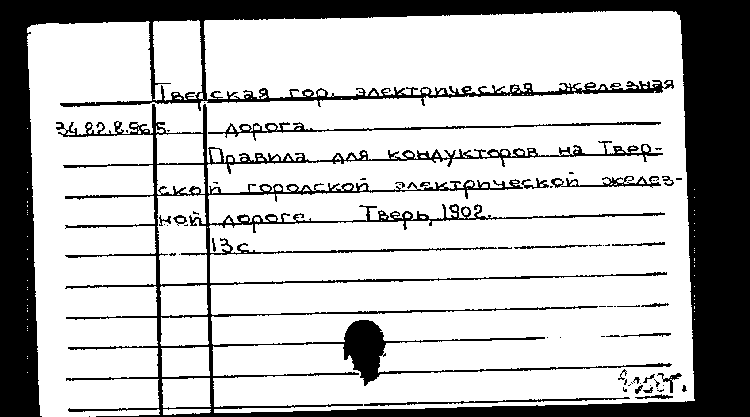 Тверская гор. электрическая железная
34.82.8.565. дорога.
Правила для кондукторов на Твер-
ской городской электрической желез-
ной дороге. Тверь, 1902.
13 с.